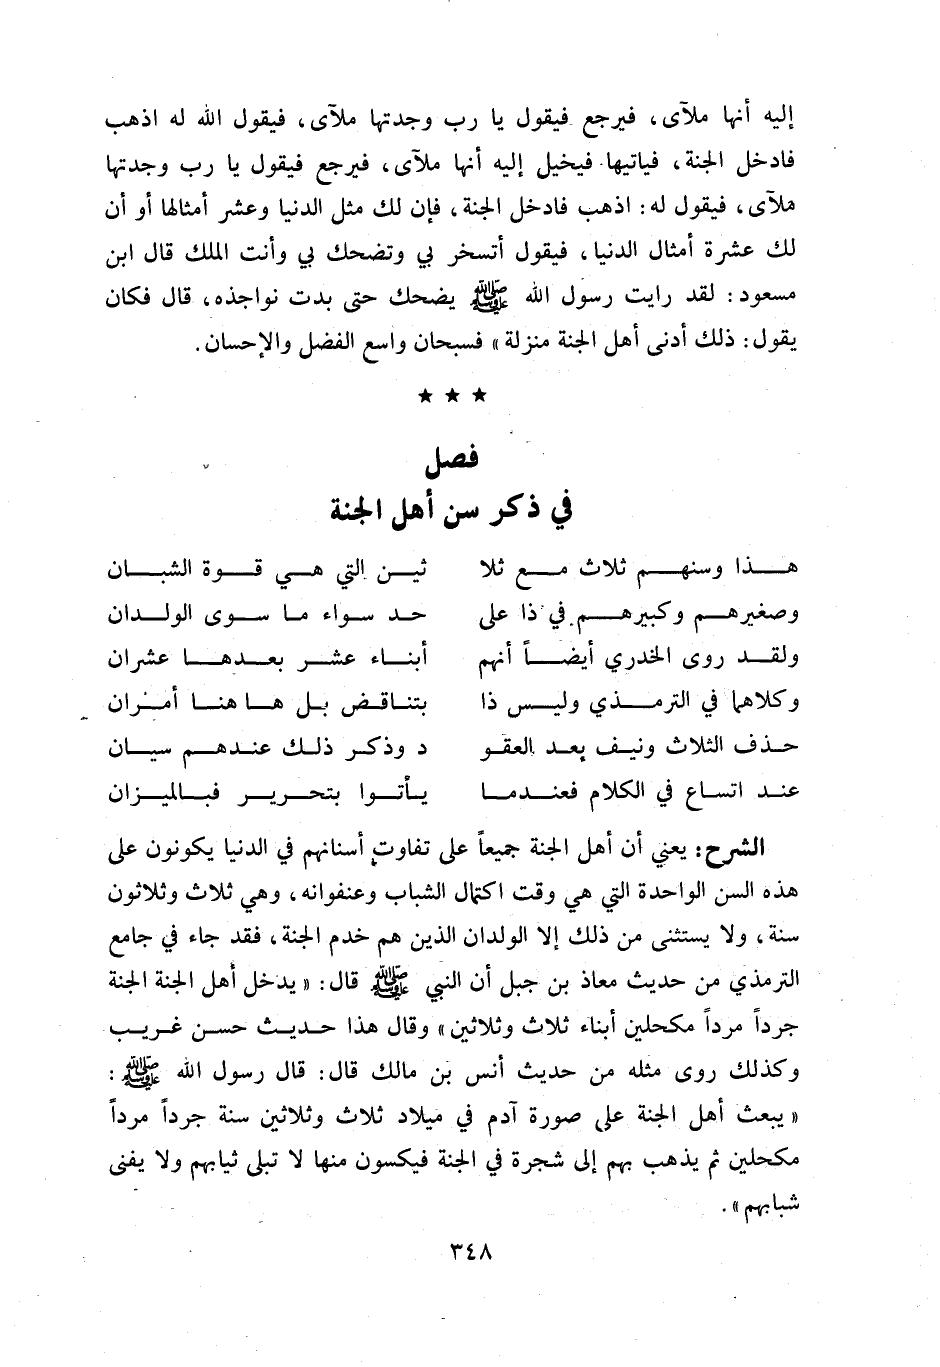 إليه أنها ملآى، فيرجع فيقول يا رب وجدتها ملآى، فيقول الله له اذهب
فادخل الجنة، فياتيها فيخيل إليه أنها ملآى، فيرجع فيقول يا رب وجدتها
ملآى، فيقول له: اذهب فادخل الجنة، فإن لك مثل الدنيا وعشر أمثالها أو أن
لك عشرة أمثال الدنيا، فيقول أتسخر بي وتضحك بي وأنت الملك قال ابن
مسعود: لقد رايت رسول الله ﷺ يضحك حتى بدت نواجذه، قال فكان
يقول: ذلك أدنى أهل الجنة منزلة» فسبحان واسع الفضل والإحسان.
★ ★ ★
فصل
في ذكر سن أهل الجنة
هذا وسنهم ثلاث مع ثلا ثين التي هي قوة الشبان
وصغيرهم وكبيرهم في ذا على حد سواء ما سوى الولدان
ولقد روى الخدري أيضاً أنهم أبناء عشر بعدها عشران
وكلاهما في الترمذي وليس ذا بتناقض بل ها هنا أمران
حذف الثلاث ونيف بعد العقو د وذكر ذلك عندهم سيان
عند اتساع في الكلام فعندما يأتوا بتحرير فبالميزان
الشرح: يعني أن أهل الجنة جميعاً على تفاوت أسنانهم في الدنيا يكونون على
هذه السن الواحدة التي هي وقت اكتمال الشباب وعنفوانه، وهي ثلاث وثلاثون
سنة، ولا يستثنى من ذلك إلا الولدان الذين هم خدم الجنة، فقد جاء في جامع
الترمذي من حديث معاذ بن جبل أن النبي ﷺ قال: «يدخل أهل الجنة الجنة
جرداً مرداً مكحلين أبناء ثلاث وثلاثين» وقال هذا حديث حسن غريب
وكذلك روى مثله من حديث أنس بن مالك قال: قال رسول الله ﷺ:
«يبعث أهل الجنة على صورة آدم في ميلاد ثلاث وثلاثين سنة جرداً مرداً
مكحلين ثم يذهب بهم إلى شجرة في الجنة فيكسون منها لا تبلى ثيابهم ولا يفنى
شبابهم».
٣٤٨